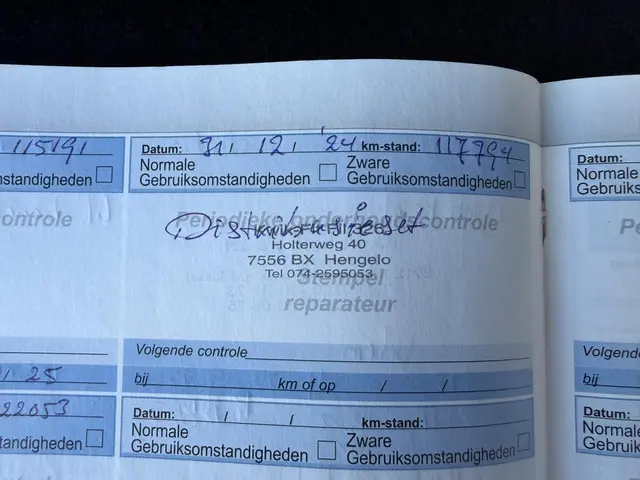 115191
standigheden
1 25
22053
standigheden
Datum: 31 / 12 / '24 km-stand: 117794
Normale Gebruiksomstandigheden
Zware Gebruiksomstandigheden
Periodieke onderhoudscontrole
Distributieset
Holterweg 40
7556 BX Hengelo
Tel 074-2595053
Stempel
reparateur
Volgende controle
bij km of op / /
Datum: / / km-stand:
Normale Gebruiksomstandigheden
Zware Gebruiksomstandigheden
Datum:
Normale
Gebruiksom
Pe
Volgende
bij
Datum:
Normale
Gebruikso